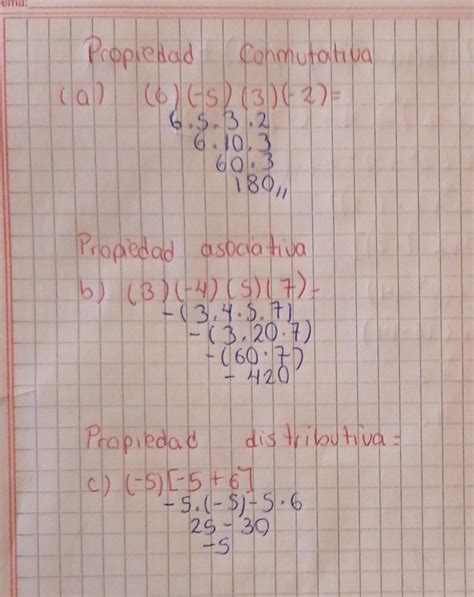 Propiedad Conmutativa
(a) (6)(-5)(3)(-2)=
6.5.3.2
6.10.3
60.3
180,,
Propiedad asociativa
b) (3)(-4)(5)(7)-
-(3.4.5.7)
-(3.20.7)
-(60.7)
- 420
Propiedad distributiva=
c) (-5)[-5+6]
-5.(-5)-5.6
25-30
-5